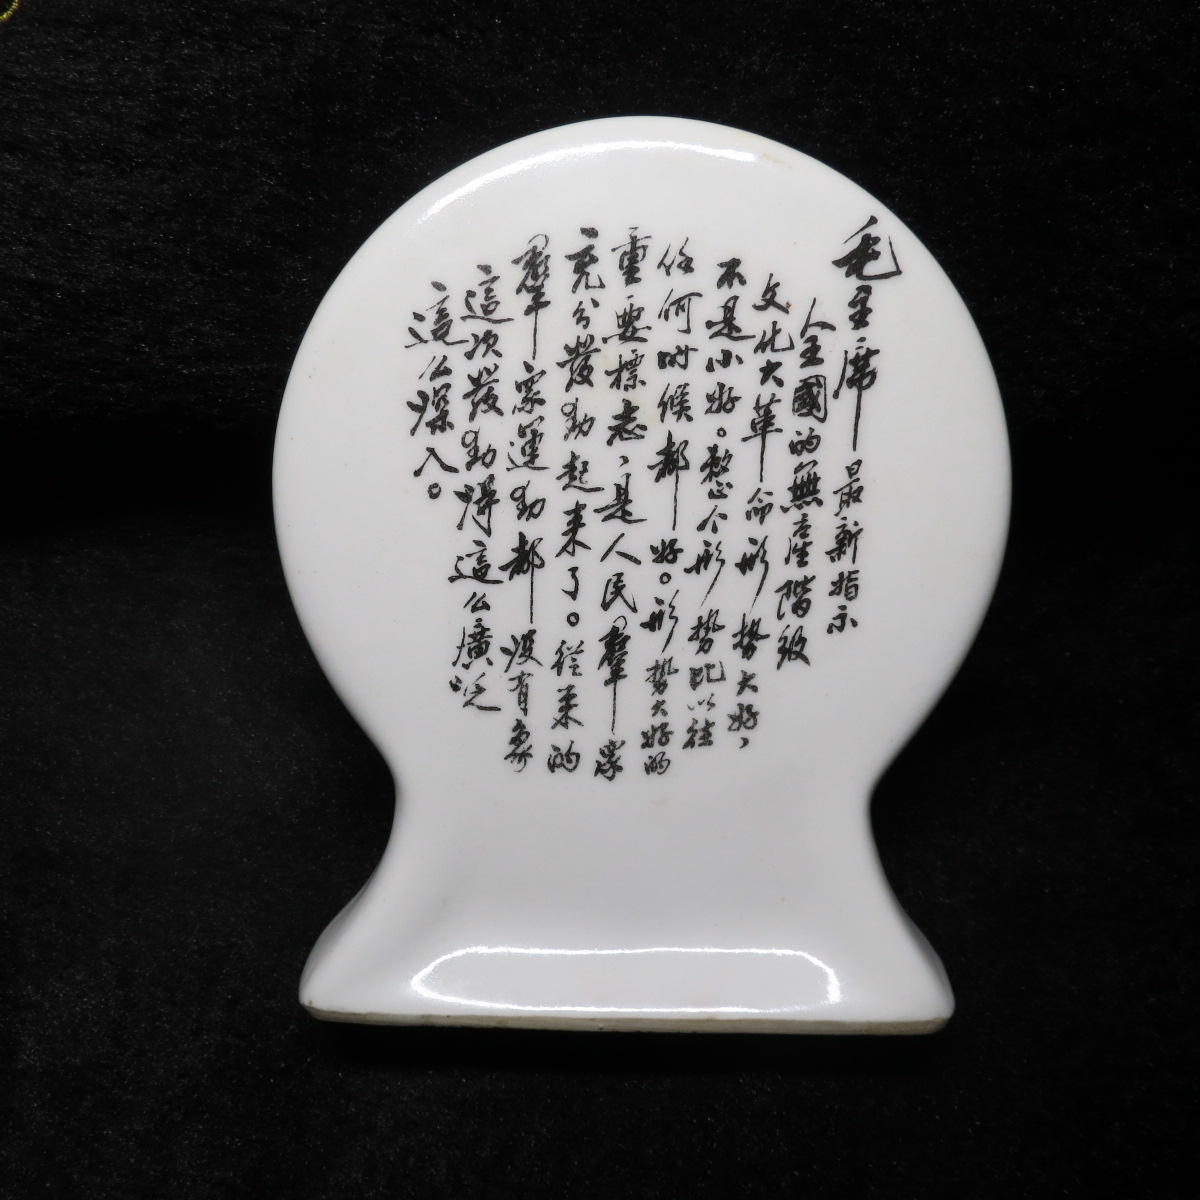 毛主席最新指示
全國的無產階級
文化大革命形勢大好、
不是小好。整个形勢比以往
任何時候都好。形勢大好的
重要標志、是人民羣眾
充分發動起来了。從来的
羣眾運動都沒有象
這次發動得這么廣泛
這么深入。